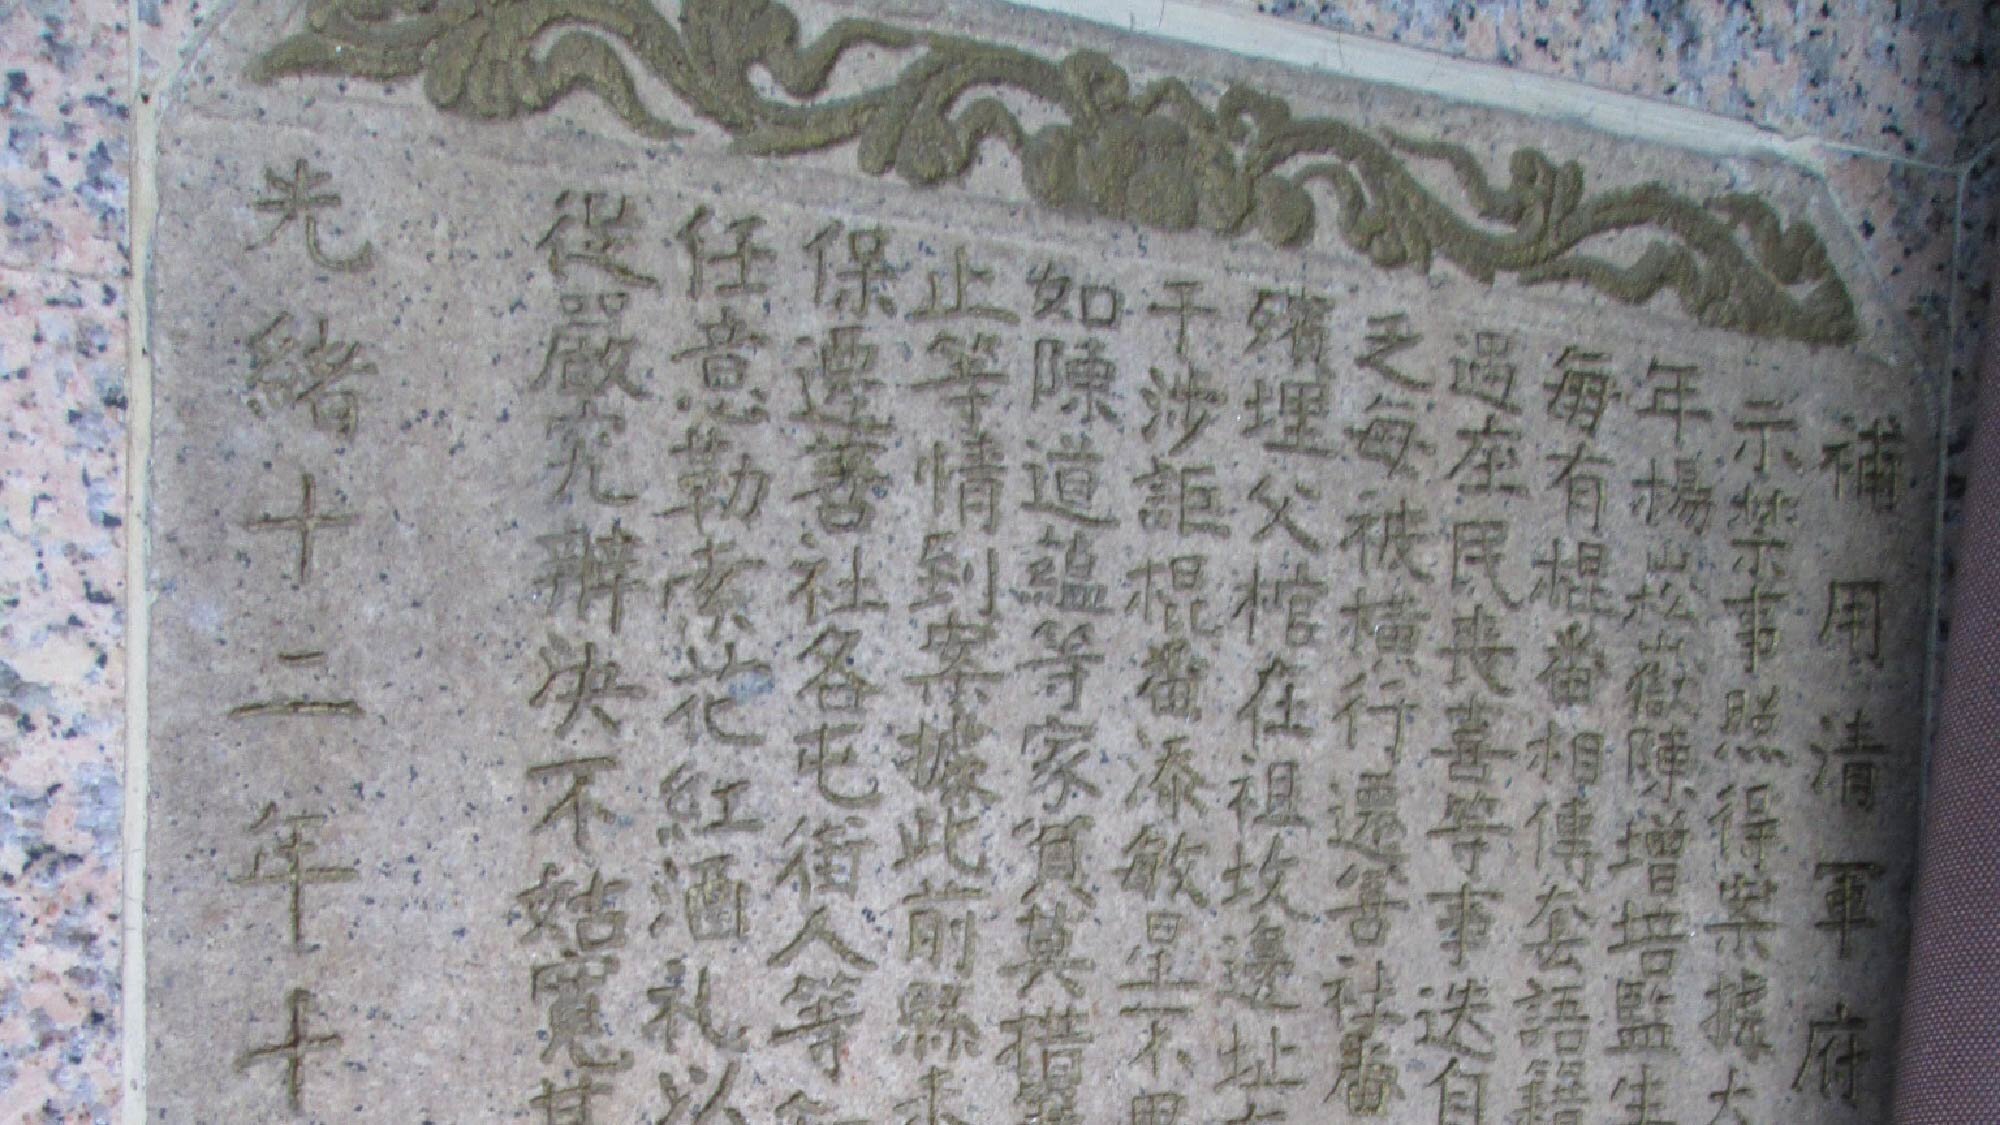 補用清軍府
示禁事照得案據大
年楊崧嶽陳增培監生
每有棍番相傳套語籍
遇座民喪喜等事迭自
乏每被橫行還善社番
殯埋父棺在祖坟邊址
干涉詎棍番添敏星不思
如陳道蘊等家貧莫措
止等情到案據此前縣
保遷善社各屯衙人等
任意勒索花紅酒礼以
從嚴究辦決不姑寬其
光緒十二年十